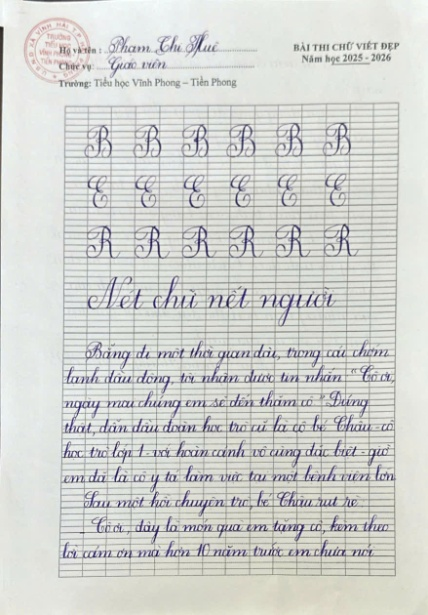 Họ và tên: Phạm Thị Huê
BÀI THI CHỮ VIẾT ĐẸP
Chức vụ: Giáo viên
Năm học 2025 - 2026
Trường: Tiểu học Vĩnh Phong – Tiền Phong
B B B B B B
E E E E E E
R R R R R R
Nét chữ nết người
Bẵng đi một thời gian dài, trong cái chớm
lạnh đầu đông, tôi nhận được tin nhắn "Cô ơi,
ngày mai chúng em sẽ đến thăm cô" Đúng
thật, dẫn đầu đoàn học trò cũ là cô bé Châu - cô
học trò lớp 1 - với hoàn cảnh vô cùng đặc biệt - giờ
em đã là cô y tá làm việc tại một bệnh viện lớn
Sau một hồi chuyện trò, bé Châu rụt rè
- Cô ơi, đây là món quà em tặng cô, kèm theo
lời cảm ơn mà hơn 10 năm trước em chưa nói